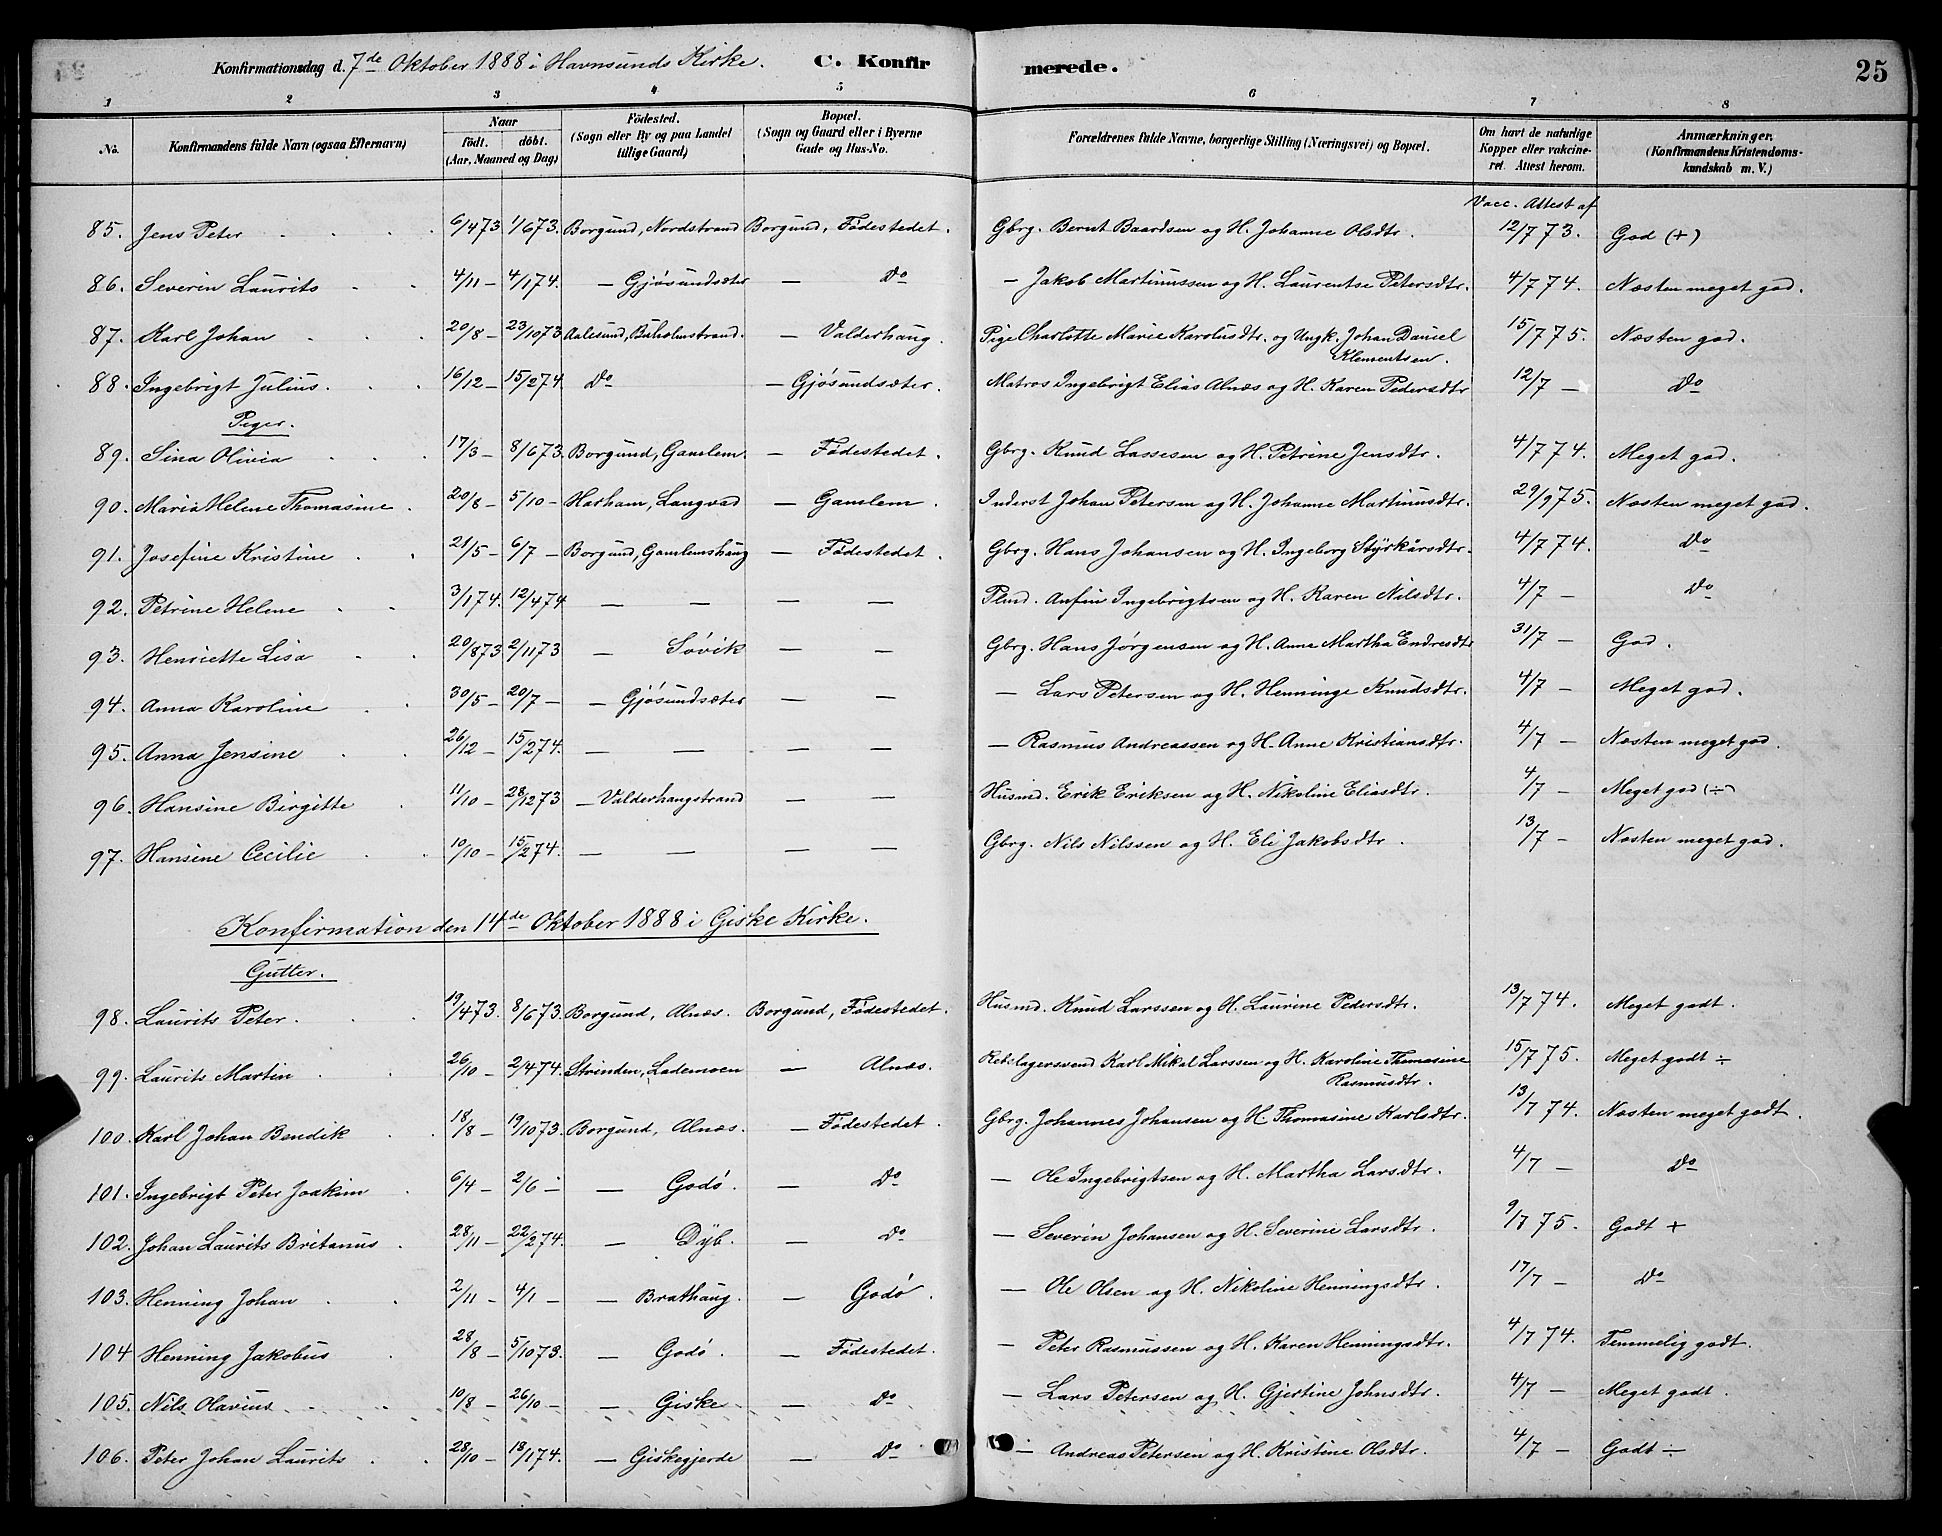 Konfirmationsdag d. 7de Oktober 1888 i Havnsunds Kirke. C. Konfirmerede. 25
1 2 3 4 5 6 7 8
No. Konfirmandens fulde Navn (ogsaa Efternavn) Naar født. døbt. (Aar, Maaned og Dag) Fødested. (Sogn eller By og paa Landet tillige Gaard) Bopæl. (Sogn og Gaard eller i Byerne Gade og Hus-No. Forældrenes fulde Navne, borgerlige Stilling (Næringsvei) og Bopæl. Om havt de naturlige Kopper eller vakcineret. Attest herom. Anmærkninger. (Konfirmandens Kristendomskundskab m. V.)
Vacc. Attest af
85. Jens Peter 6/4 73 1/6 73. Borgund, Nordstrand Borgund, Fødestedet. Gbrg. Bernt Baardsen og H. Johanne Olsdtr. 12/7 73. God (+)
86. Severin Laurits 4/11 — 4/1 74. — Gjøsundsæter — Do — Jakob Martinussen og H. Laurentse Petersdtr. 4/7 74. Næsten meget god.
87. Karl Johan 20/8 — 23/10 73 Aalesund, Buholmstrand. — Valderhaug. Pige Charlotte Marie Karolusdtr. og Ungk. Johan Daniel Klementsen. 15/7 75. Næsten god.
88. Ingebrigt Julius. 16/12 — 15/2 74. Do — Gjøsundsæter. Matros Ingebrigt Elias Alnæs og H. Karen Pedersdtr 12/7 — Do
Piger.
89. Sina Olivia 17/3 — 8/6 73. Borgund, Gamlem. — Fødestedet. Gbrg. Knud Lassesen og H. Petrine Jensdtr. 4/7 74. Meget god.
90. Maria Helene Thomasine. 20/8 — 5/10 — Harham, Langvad — Gamlem. Inderst Johan Petersen og H. Johanne Martinusdtr. 29/9 75. Næsten meget god.
91. Josefine Kristine 21/5 — 6/7 — Borgund, Gamlemshaug — Fødestedet. Gbrg. Hans Johansen og H. Ingeborg Styrkårsdtr. 4/7 74. Do
92. Petrine Helene 3/1 74. 12/4 74 — — — — Plmd. Anfin Ingebrigtsen og H. Karen Nilsdtr. 4/7 — Do
93. Henriette Lisa 20/8 73 2/11 73 — Søvik — — Gbrg. Hans Jørgensen og H. Anne Martha Endresdtr 31/7 — God.
94. Anna Karoline 30/5 — 20/7 — — Gjøsundsæter — — — Lars Petersen og H. Henninge Knudsdtr. 4/7 — Meget god.
95. Anna Jensine 26/12 — 15/2 74. — — — — — Rasmus Andreassen og H. Anne Kristiansdtr. 4/7 — Næsten meget god.
96. Hansine Birgitte 11/10 — 28/12 73 — Valderhaugstrand — — Husmd. Erik Eriksen og H. Nikoline Eliasdtr. 4/7 — Meget god (÷)
97. Hansine Cecilie 10/10 — 15/2 74. — — — — Gbrg. Nils Nilssen og H. Eli Jakobsdtr. 13/7 — Næsten meget god.
Konfirmation den 14de Oktober 1888 i Giske Kirke.
Gutter.
98. Laurits Peter. 19/4 73. 8/6 73. Borgund, Alnæs. Borgund, Fødestedet. Husmd. Knud Larssen og H. Laurine Pedersdtr. 13/7 74. Meget godt.
99. Laurits Martin 26/10 — 2/4 74. Strinden, Lademoen — Alnæs. Rebslagersvend Karl Mikal Larssen og H. Karoline Thomasine Rasmusdtr. 15/7 75. Meget godt ÷
100. Karl Johan Bendik 18/8 — 19/10 73. Borgund, Alnæs. — Fødestedet. Gbrg. Johannes Johansen og H. Thomasine Karlsdtr. 13/7 74. Næsten meget godt.
101. Ingebrigt Peter Joakim 6/4 — 2/6 — — Godø. — Do — Ole Ingebrigtsen og H. Martha Larsdtr. 4/7 — Do
102. Johan Laurits Britanus. 28/11 — 22/2 74. — Dyb. — Do — Severin Johansen og H. Severine Larsdtr. 9/7 75. Godt +
103. Henning Johan 2/11 — 4/1 — — Brathaug. — Godø. — Ole Olsen og H. Nikoline Henningsdtr. 17/7 — Do
104 Henning Jakobus 28/8 — 5/10 73. — Godø. — Fødestedet. — Peter Rasmussen og H. Karen Henningsdtr. 4/7 74. Temmelig godt.
105. Nils Olavius 10/8 — 26/10 — — Giske — Do — Lars Petersen og H. Gjertine Johnsdtr. 4/7 — Meget godt.
106. Peter Johan Laurits 28/10 — 18/1 74. — Giskegjerde — Do — Andreas Petersen og H. Kristine Olsdtr. 4/7 — Godt ÷